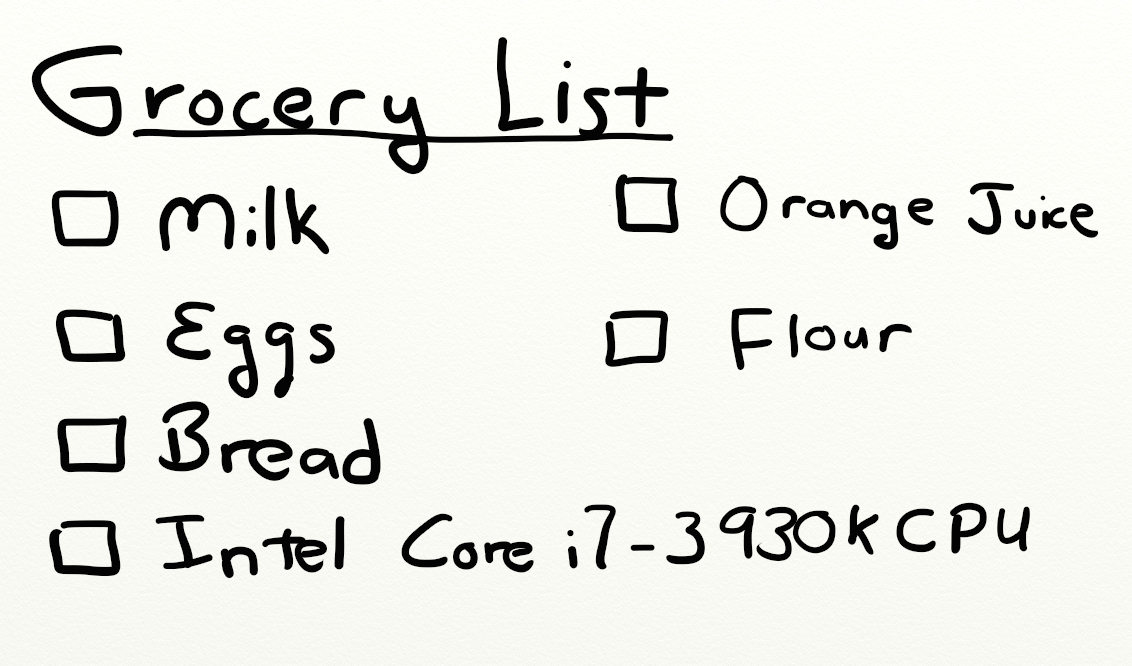 Grocery List
Milk
Eggs
Bread
Intel Core i7-3930K CPU
Orange Juice
Flour